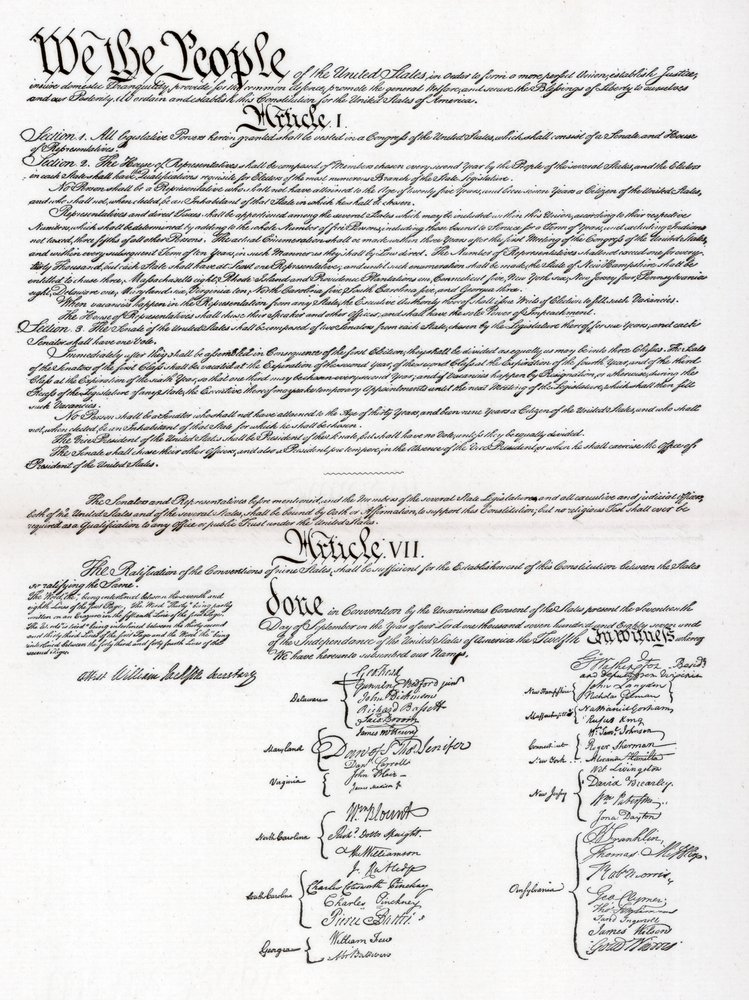 We the People of the United States, in order to form a more perfect Union, establish Justice,
insure domestic Tranquility, provide for the common defence, promote the general Welfare, and secure the Blessings of Liberty to ourselves
and our Posterity, do ordain and establish this Constitution for the United States of America.
Article. I.
Section. 1. All legislative Powers herein granted shall be vested in a Congress of the United States, which shall consist of a Senate and House
of Representatives.
Section. 2. The House of Representatives shall be composed of Members chosen every second Year by the People of the several States, and the Electors
in each State shall have the Qualifications requisite for Electors of the most numerous Branch of the State Legislature.
No Person shall be a Representative who shall not have attained to the Age of twenty five Years, and been seven Years a Citizen of the United States,
and who shall not, when elected, be an Inhabitant of that State in which he shall be chosen.
Representatives and direct Taxes shall be apportioned among the several States which may be included within this Union, according to their respective
Numbers, which shall be determined by adding to the whole Number of free Persons, including those bound to Service for a Term of Years, and excluding Indians
not taxed, three fifths of all other Persons. The actual Enumeration shall be made within three Years after the first Meeting of the Congress of the United States,
and within every subsequent Term of ten Years, in such Manner as they shall by Law direct. The Number of Representatives shall not exceed one for every
thirty Thousand, but each State shall have at Least one Representative; and until such enumeration shall be made, the State of New Hampshire shall be
entitled to chuse three, Massachusetts eight, Rhode Island and Providence Plantations one, Connecticut five, New York six, New Jersey four, Pennsylvania
eight, Delaware one, Maryland six, Virginia ten, North Carolina five, South Carolina five, and Georgia three.
When vacancies happen in the Representation from any State, the Executive Authority thereof shall issue Writs of Election to fill such Vacancies.
The House of Representatives shall chuse their Speaker and other Officers; and shall have the sole Power of Impeachment.
Section. 3. The Senate of the United States shall be composed of two Senators from each State, chosen by the Legislature thereof, for six Years; and each
Senator shall have one Vote.
Immediately after they shall be assembled in Consequence of the first Election, they shall be divided as equally as may be into three Classes. The Seats
of the Senators of the first Class shall be vacated at the Expiration of the second Year, of the second Class at the Expiration of the fourth Year, and of the third
Class at the Expiration of the sixth Year, so that one third may be chosen every second Year; and if Vacancies happen by Resignation, or otherwise, during the
Recess of the Legislature of any State, the Executive thereof may make temporary Appointments until the next Meeting of the Legislature, which shall then fill
such Vacancies.
No Person shall be a Senator who shall not have attained to the Age of thirty Years, and been nine Years a Citizen of the United States, and who shall
not, when elected, be an Inhabitant of that State for which he shall be chosen.
The Vice President of the United States shall be President of the Senate, but shall have no Vote, unless they be equally divided.
The Senate shall chuse their other Officers, and also a President pro tempore, in the Absence of the Vice President, or when he shall exercise the Office of
President of the United States.
The Senators and Representatives before mentioned, and the Members of the several State Legislatures, and all executive and judicial Officers,
both of the United States and of the several States, shall be bound by Oath or Affirmation, to support this Constitution; but no religious Test shall ever be
required as a Qualification to any Office or public Trust under the United States.
Article. VII.
The Ratification of the Conventions of nine States, shall be sufficient for the Establishment of this Constitution between the States
so ratifying the Same.
The Word, the, being interlined between the seventh and
eighth Lines of the first Page, The Word Thirty being partly
written on an Erazure in the fifteenth Line of the first Page,
The Words is tried being interlined between the thirty second
and thirty third Lines of the first Page and the Word the being
interlined between the forty third and forty fourth Lines of the
second Page.
Attest William Jackson Secretary
done in Convention by the Unanimous Consent of the States present the Seventeenth
Day of September in the Year of our Lord one thousand seven hundred and Eighty seven and
of the Independence of the United States of America the Twelfth In witness whereof
We have hereunto subscribed our Names,
Delaware
Geo Read
Gunning Bedford jun
John Dickinson
Richard Bassett
Jaco Broom
Maryland
James McHenry
Dan of St Thos Jenifer
Danl Carroll
Virginia
John Blair
James Madison Jr
North Carolina
Wm Blount
Richd Dobbs Spaight
Hu Williamson
South Carolina
J. Rutledge
Charles Cotesworth Pinckney
Charles Pinckney
Pierce Butler
Georgia
William Few
Abr Baldwin
Go Washington Presidt
and deputy from Virginia
New Hampshire
John Langdon
Nicholas Gilman
Massachusetts
Nathaniel Gorham
Rufus King
Connecticut
Wm Saml Johnson
Roger Sherman
New York
Alexander Hamilton
New Jersey
Wil Livingston
David Brearley
Wm Paterson
Jona Dayton
Pensylvania
B Franklin
Thomas Mifflin
Robt Morris
Geo Clymer
Thos FitzSimons
Jared Ingersoll
James Wilson
Gouv Morris